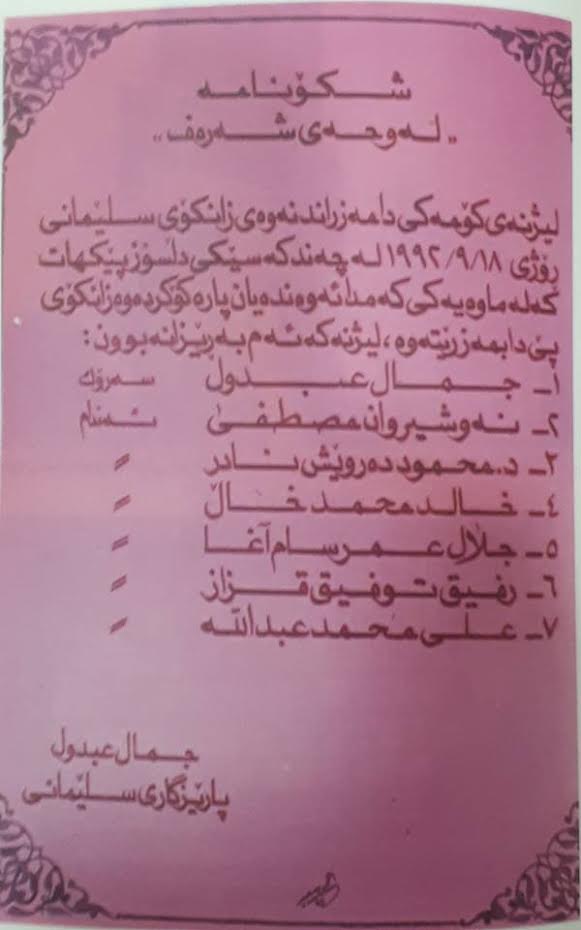 شکۆنامە
,, لەوحەی شەرەف ,,
لیژنەی کۆمەکی دامەزراندنەوەی زانکۆی سلێمانی
ڕۆژی ١٩٩٢/٩/١٨ لە چەند کەسێکی دڵسۆز پێکهات
کەلە ماوەیەکی کەمدا ئەوەندەیان پارە کۆکردەوە زانکۆی
پێ دابمەزرێتەوە، لیژنەکە ئەم بەڕێزانە بوون:
١ـ جمال عبدول سەرۆك
٢ـ نەوشیروان مصطفی ئەندام
٣ـ د. محمود دەروێش نادر 〃
٤ـ خالد محمد خاڵ 〃
٥ـ جلال عمر سام آغا 〃
٦ـ رفیق توفیق قزاز 〃
٧ـ علی محمد عبدالله 〃
جمال عبدول
پارێزگاری سلێمانی